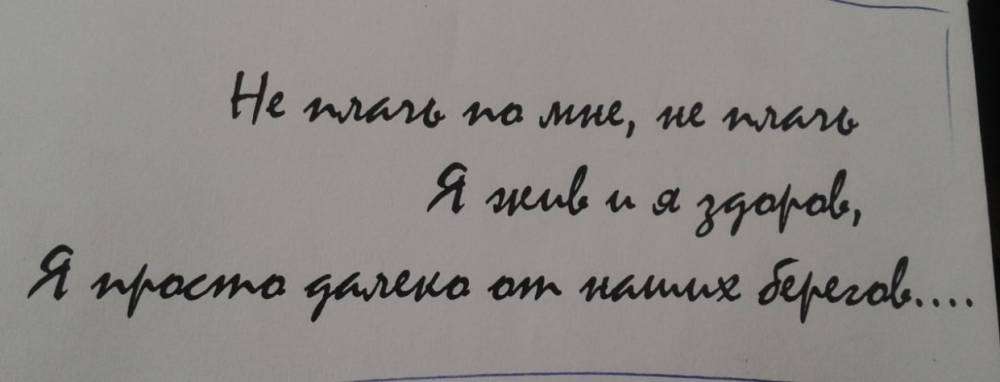 Не плачь по мне, не плачь
Я жив и я здоров,
Я просто далеко от наших берегов....